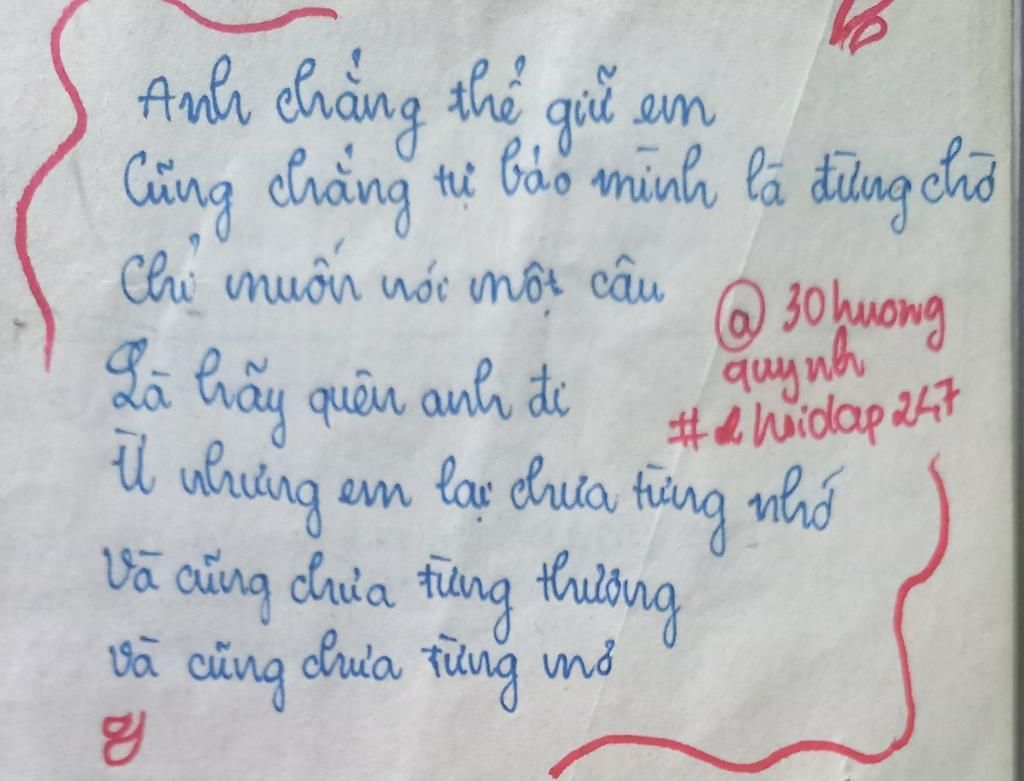 Anh chẳng thể giữ em
Cũng chẳng tự bảo mình là đừng chờ
Chỉ muốn nói một câu
Là hãy quên anh đi
Ừ nhưng em lại chưa từng nhớ
Và cũng chưa từng thương
Và cũng chưa từng mơ
@ 30huong
quynh
# hoidap247